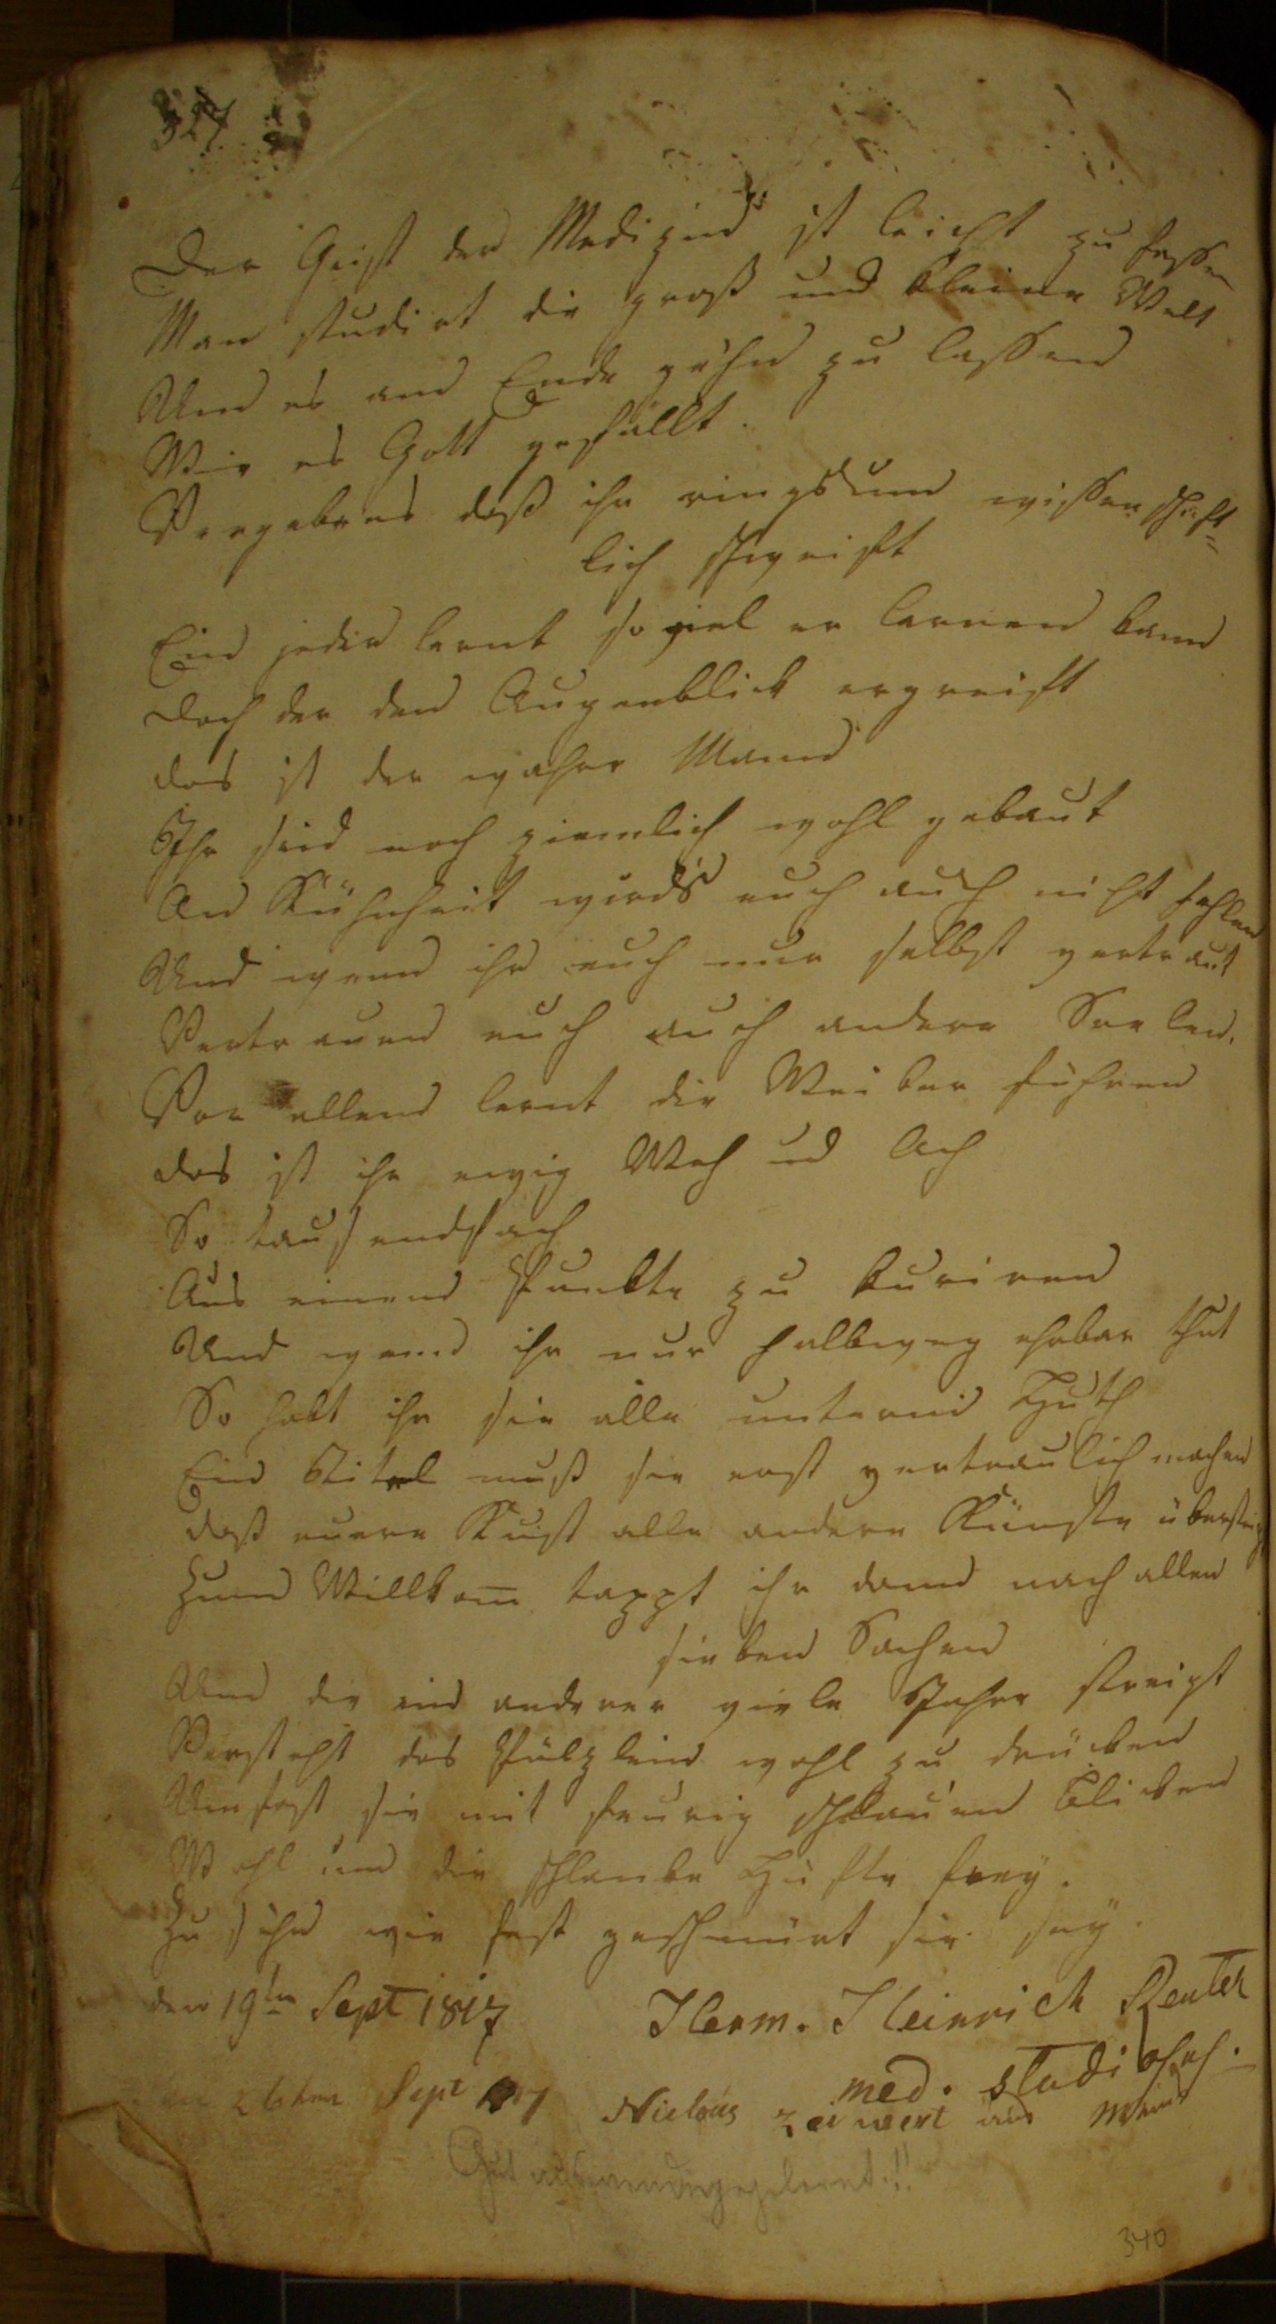 327
Der Geist der Medizin ist leicht zu fassen
Man studirt die groß und kleine Welt
Um es am Ende gehn zu lassen
Wie es Gott gefällt.
Vergebens daß ihr ringsum wissenschaft=
lich schweift
Ein jeder lernt so viel er lernen kann
Doch der den Augenblick ergreift
das ist der wahre Mann
Ihr seid noch ziemlich wohl gebaut
An Kühnheit wirds euch auch nicht fehlen
Und wenn ihr euch nur selbst vertraut
Vertrauen euch auch andere Seelen.
Vor allem lernt die Weiber führen
das ist ihr ewig Weh und Ach
So tausendfach
Aus einem Punkte zu kuriren
Und wenn ihr nur halbweg ehrbar thut
So habt ihr sie alle unterm Huth
Ein Titel muß sie erst vertraulich machen
daß euere Kunst alle andere Künste übersteigt
Zum Willkom̅ tappt ihr dann nach allen
sieben Sachen
Um die ein anderer viele Jahre streigt
Versteht das Pülzlein wohl zu drücken
Umfast sie mit feurig schlauen blicken
Wohl um die schlanke Hüfte frey.
Zu sehn wie fest geschnürt sie sey.
den 19ten Sept 1817
Herm. Heinrich Reuter
med. studi
26ten Sept 17 Niclaus Zeiwert aus
Gut auswendiggelernt!!
340